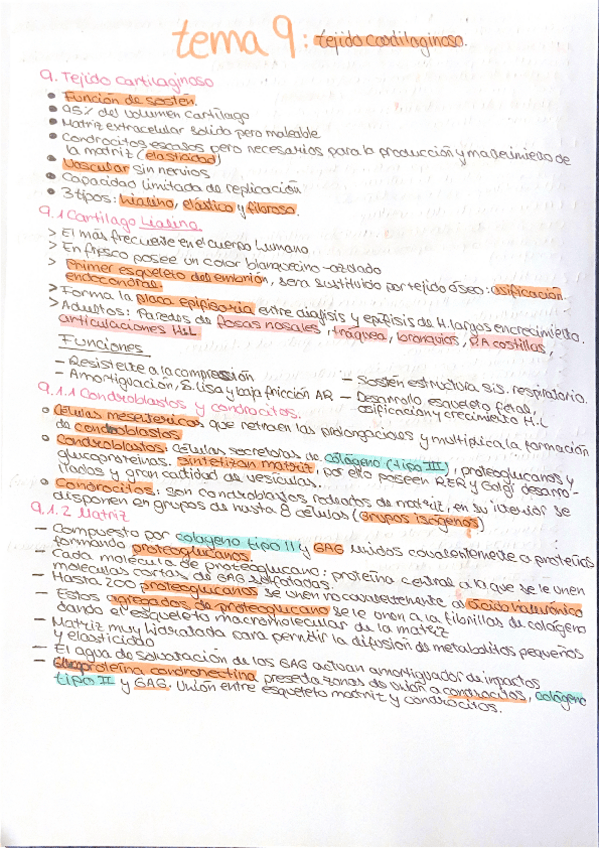 tema 9: tejido cartilaginoso.
9. Tejido cartilaginoso
• Función de sostén.
• 95% del volumen cartílago
• Matriz extracelular solida pero maleable
• Condrocitos escasos pero necesarios para la producción y mantenimiento de
la matriz (elasticidad)
• Vascular sin nervios
• Capacidad limitada de replicación.
• 3 tipos: hialino, elástico y fibroso.
9.1 Cartilago hialino
> El más frecuente en el cuerpo humano
> En fresco posee un color blanquecino-azulado
> Primer esqueleto del embrión, sera sustituido por tejido óseo: osificación
endocondral.
> Forma la placa epifisaria entre diafisis y epifisis de H. largos en crecimiento.
> Adultos: Paredes de fosas nasales, traquea, bronquios, P.A costillas,
articulaciones H.L
Funciones
- Resistente a la compresión
- Amortiguación, S. lisa y baja fricción AR
- Sosten estructura sis. respiratorio.
- Desarrollo esqueleto fetal,
osificación y crecimiento H.L
9.1.1 Condroblastos y condrocitos.
• Células mesentericos que retraen las prolongaciones y multiplica la formación
de condroblastos
• Condroblastos: Células secretoras de colágeno (tipo III), proteoglucanos y
glucoproteinas. Sintetizan matriz, por ello poseen RER y Golgi desarro-
llados y gran cantidad de vesículas.
• Condrocitos: son condroblastos rodeados de matriz, en su interior se
disponen en grupos de hasta 8 células (grupos isógenos)
9.1.2 Matriz
- Compuesto por colageno tipo II y GAG unidos covalentemente a proteínas
formando proteoglucanos.
- Cada molécula de proteoglucano: proteína central a la que se le unen
moléculas cortas de GAG sulfatadas.
- Hasta 200 proteoglucanos se unen no covalentemente al ácido hialurónico
- Estos agregados de proteoglucano se le unen a la fibrillas de colágeno
dando el esqueleto macromolecular de la matriz
- Matriz muy hidratada para permitir la difusión de metabolitos pequeños
y elasticidad
- El agua de solvatación de los GAG actuan amortiguador de impactos
- Glucoproteína condronectina presenta zonas de unión a condrocitos, colágeno
tipo II y GAG. Unión entre esqueleto matriz y condrocitos.